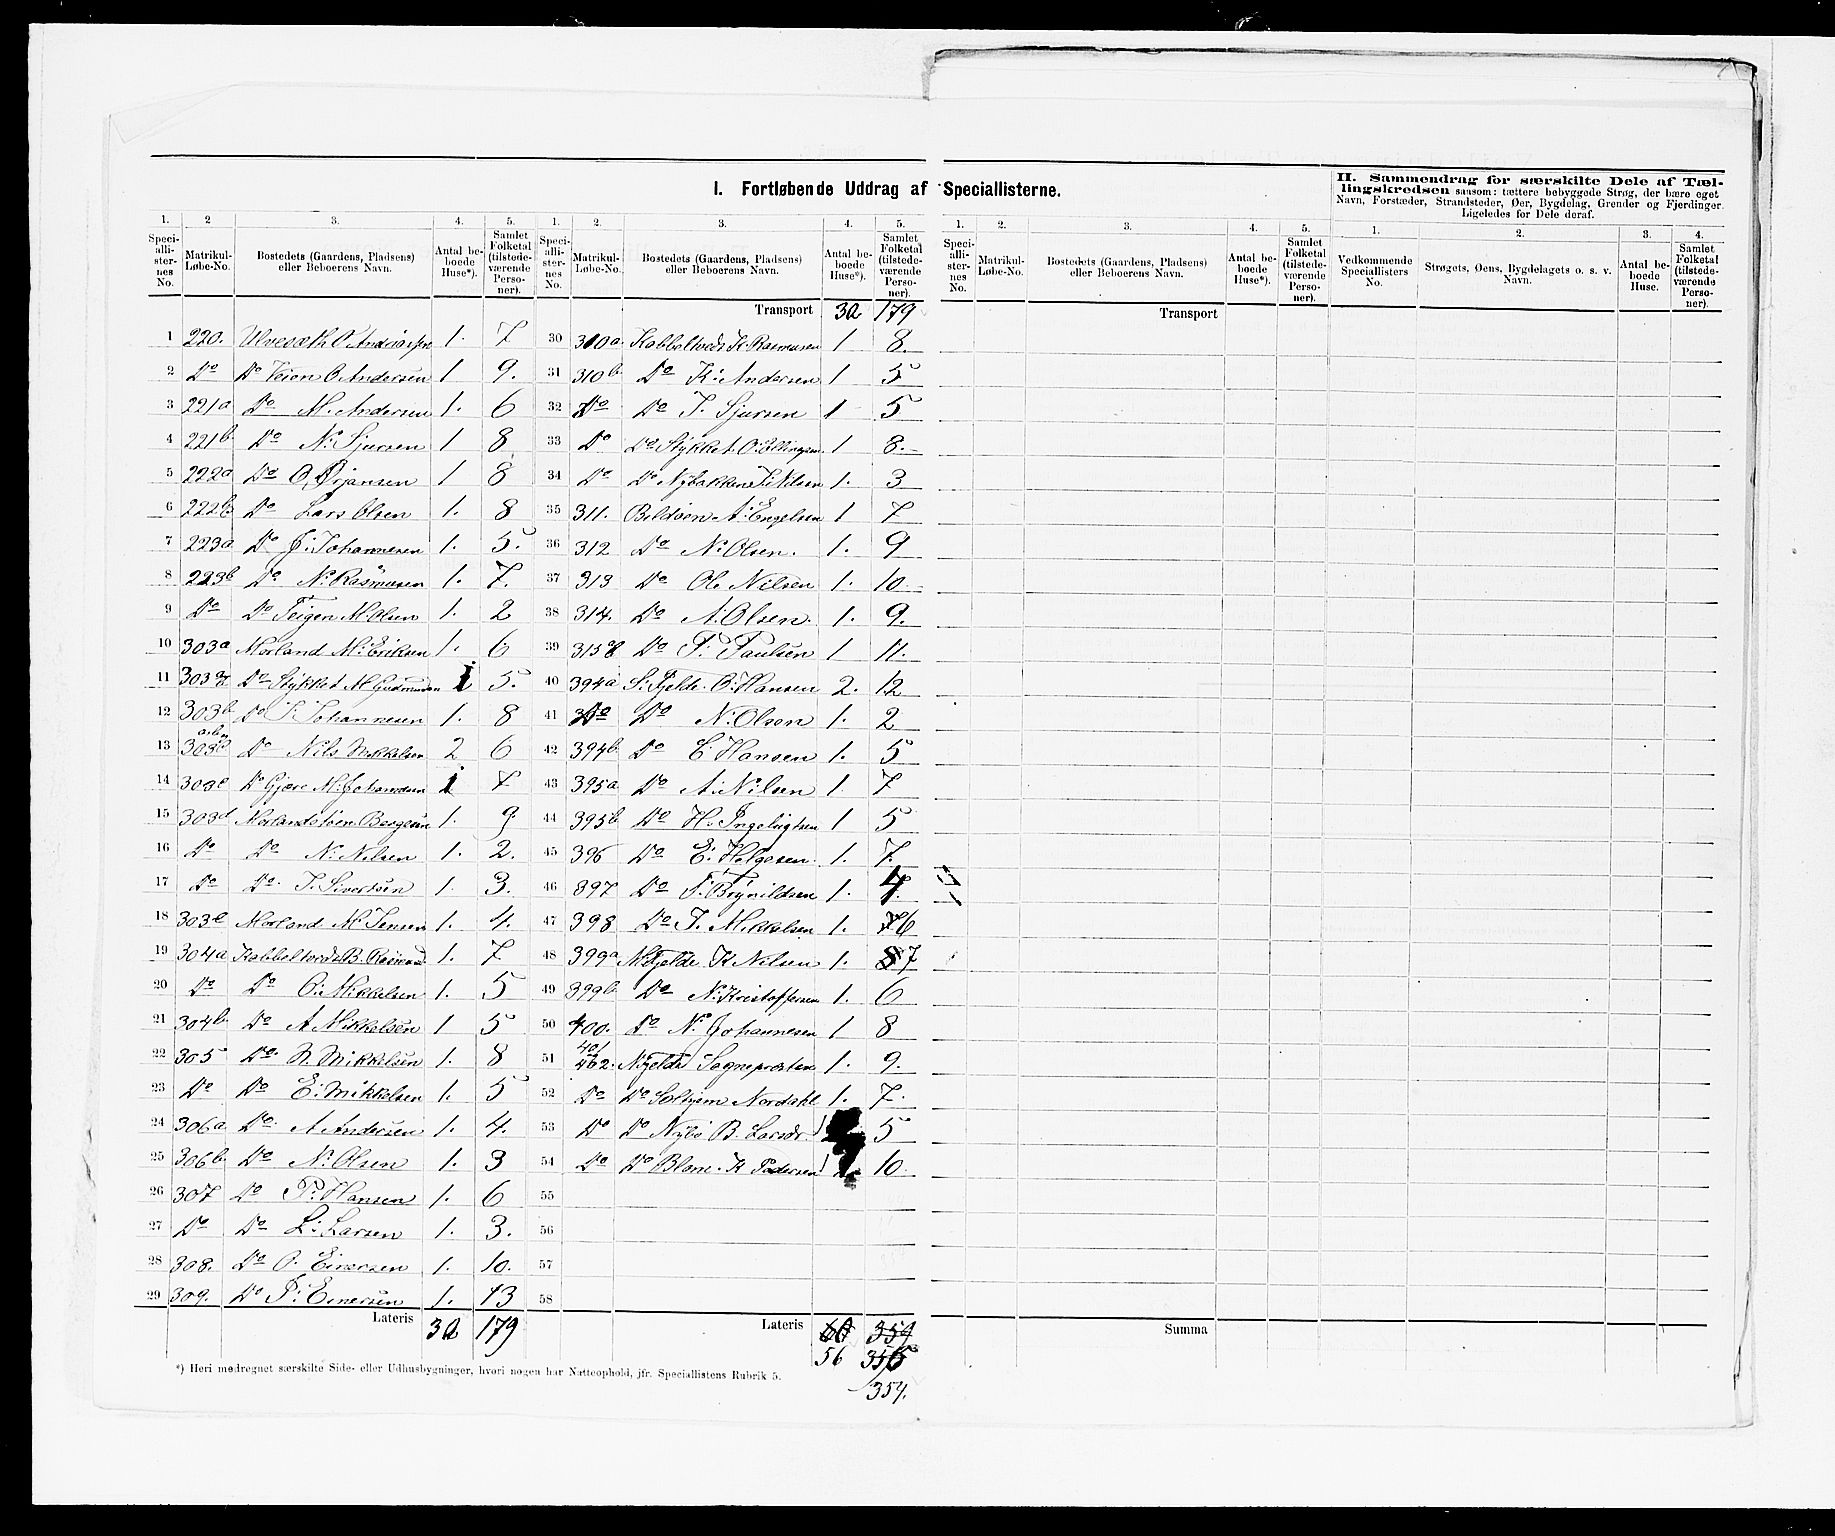 I. Fortløbende Uddrag af Speciallisterne.
II. Sammendrag for særskilte Dele af Tællingskredsen saasom: tættere bebyggede Strøg, der bære eget
Navn, Forstæder, Strandsteder, Øer, Bygdelag, Grender og Fjerdinger.
Ligeledes for Dele deraf.
1. 2 3. 4. 5. 1. 2. 3. 4. 5. 1. 2. 3. 4. 5. 1. 2. 3. 4.
Speciallisternes No. Matrikul-Løbe-No. Bostedets (Gaardens, Pladsens) eller Beboerens Navn. Antal beboede Huse*). Samlet Folketal (tilstedeværende Personer).
Speciallisternes No. Matrikul-Løbe-No. Bostedets (Gaardens, Pladsens) eller Beboerens Navn. Antal beboede Huse*). Samlet Folketal (tilstedeværende Personer).
Speciallisternes No. Matrikul-Løbe-No. Bostedets (Gaardens, Pladsens) eller Beboerens Navn. Antal beboede Huse*). Samlet Folketal (tilstedeværende Personer).
Vedkommende Speciallisters No. Strøgets, Øens, Bygdelagets o. s. v. Navn. Antal beboede Huse. Samlet Folketal (tilstedeværende Personer).
1 220. 1. 7
2 Do Do Veien O Andersen 1 9.
3 221a Do M. Andersen 1. 6
4 221b Do N: Sjursen 1 8
5 222a Do O, Ørjansen 1 8
6 222b Do Lars Olsen 1. 8
7 223a Do J: Johannesen 1. 5.
8 223b Do N: Rasmusen 1. 7.
9 Do Do Teigen M. Olsen 1. 2
10 303a Morland M: Eriksen 1. 6
11 Do Stykket M Gudmundsen 1 5.
12 303b Do J: Johannesen 1. 8
13 Do Nils Mikkelsen 2 6
14 303c Do M: Johannesen 1 7
15 303d 1. 9
16 Do Do N: Nilsen 1. 2.
17 Do Do. J. Sivertsen 1. 3.
18 303e Morland M: Jensen 1. 4.
19 304a Kobbeltvedt B. 1. 7
20 Do Do O: Mikkelsen 1. 5
21 304b. Do A Mikkelsen 1 5
22 305 Do. N. Mikkelsen 1. 8
23 Do Do E: Mikkelsen 1. 5
24 306a Do. A Andersen 1. 4.
25 306b. Do N: Olsen 1. 3
26 307 Do P: Hansen 1. 6
27 Do Do L: Larsen 1. 3.
28 308. Do O. Einersen 1. 10.
29 309. Do P: Einersen 1. 13
Lateris 32 179
Transport 32 179
30 310a. Kobbeltvedt K. Rasmusen 1 8.
31 310b. Do K: Andersen 1 5
32 Do Do J. Sjursen 1 5
33 Do Do Stykket O: Ellingsen 1 8.
34 Do Do Nybakken J: Nilsen 1. 3
35 311. Bildøen A: Engelsen 1 7
36 312 Do N: Olsen. 1. 9
37 313 Do Ole Nilsen 1. 10.
38 314. Do A: Olsen. 1. 9.
39 Do P: Paulsen 1 11.
40 394a S: Fjelde. O: Hansen 2. 12
41 Do Do N: Olsen 1. 2
42 394b. Do E Hansen 1. 5
43 395a Do A: Nilsen 1. 7
44 395b. Do H. Ingebrigtsen 1 5
45 396 Do E: Helgesen. 1. 7.
46 397 Do Brynildsen 1. 4.
47 398 Do J. Mikkelsen 1. 6
48 399a N. Fjelde K Nilsen 1. 7
49 399b. Do N: Kristoffersen 1. 6
50 400. Do N: Johannesen 1 8
51 401/402. N. Fjelde Sognepresten 1. 9.
52 Do Do Solhjem Nordahl 1. 7.
53 Do Do Nybø B. Larsdr. 1 5
54 Do Do Blom. K Pedersen 1 10.
55
56
57
58
Lateris 60 359
56 356
357.
Transport
Summa
*) Heri medregnet særskilte Side- eller Udhusbygninger, hvori nogen har Natteophold, jfr. Speciallistens Rubrik 5.